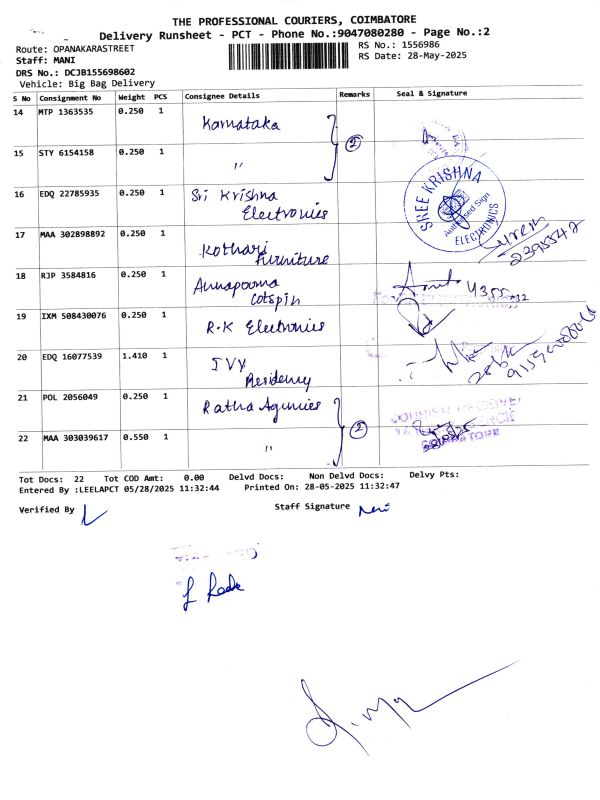 THE PROFESSIONAL COURIERS, COIMBATORE
Delivery Runsheet - PCT - Phone No.:9047080280 - Page No.:2
Route: OPANAKARASTREET
RS No.: 1556986
Staff: MANI
RS Date: 28-May-2025
DRS No.: DCJB155698602
Vehicle: Big Bag Delivery
S No Consignment No Weight PCS Consignee Details Remarks Seal & Signature
14 MTP 1363535 0.250 1 Karnataka
2
15 STY 6154158 0.250 1 "
16 EDQ 22785935 0.250 1 Sri Krishna
Electronics
SREE KRISHNA
Authorised Sign
ELECTRONICS
17 MAA 302898892 0.250 1 Kothari
Furniture
18 RJP 3584816 0.250 1 Annapoorna
Cotspin
19 IXM 508430076 0.250 1 R.K Electronics
20 EDQ 16077539 1.410 1 IVY
Residency
21 POL 2056049 0.250 1 Ratha Agencies
2
22 MAA 303039617 0.550 1 "
Tot Docs: 22 Tot COD Amt: 0.00 Delvd Docs: Non Delvd Docs: Delvy Pts:
Entered By :LEELAPCT 05/28/2025 11:32:44 Printed On: 28-05-2025 11:32:47
Verified By
Staff Signature